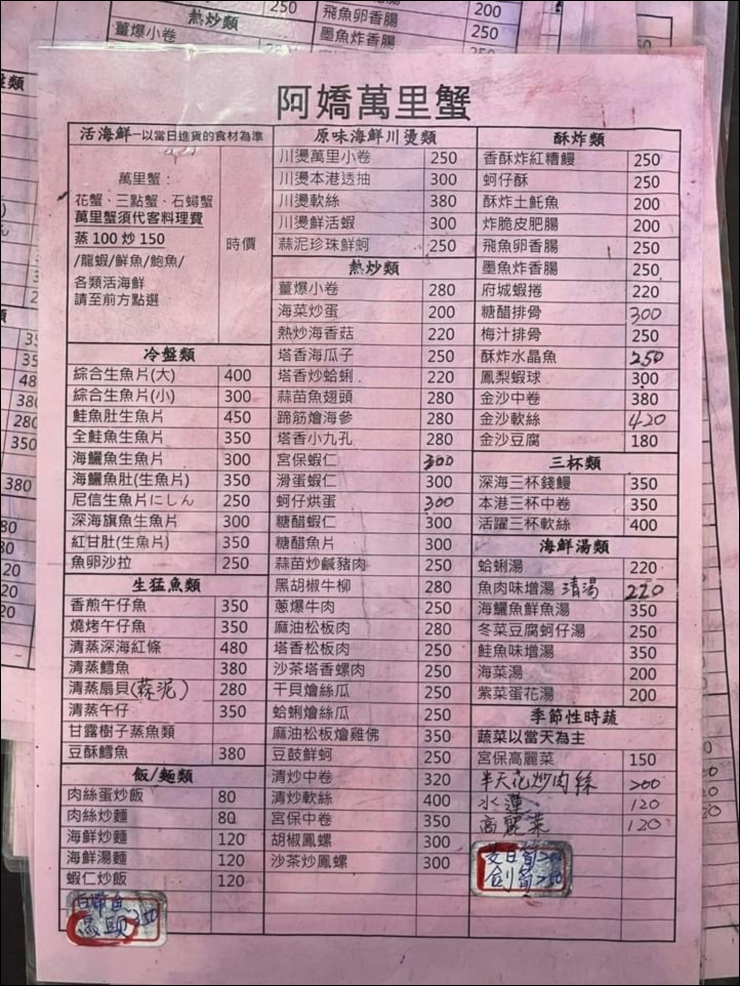 熱炒類
薑爆小卷 250
飛魚卵香腸 200
墨魚炸香腸 250
250
阿嬌萬里蟹
活海鮮-以當日進貨的食材為準
萬里蟹：
花蟹、三點蟹、石蟳蟹
萬里蟹須代客料理費
蒸100炒150
/龍蝦/鮮魚/鮑魚/
各類活海鮮
請至前方點選
時價
冷盤類
綜合生魚片(大) 400
綜合生魚片(小) 300
鮭魚肚生魚片 450
全鮭魚生魚片 350
海鱺魚生魚片 300
海鱺魚肚(生魚片) 350
尼信生魚片にしん 250
深海旗魚生魚片 300
紅甘肚(生魚片) 350
魚卵沙拉 250
生猛魚類
香煎午仔魚 350
燒烤午仔魚 350
清蒸深海紅條 480
清蒸鱈魚 380
清蒸扇貝(蒜泥) 280
清蒸午仔 350
甘露樹子蒸魚類
豆酥鱈魚 380
飯/麵類
肉絲蛋炒飯 80
肉絲炒麵 80
海鮮炒麵 120
海鮮湯麵 120
蝦仁炒飯 120
白帶魚
350
原味海鮮川燙類
川燙萬里小卷 250
川燙本港透抽 300
川燙軟絲 380
川燙鮮活蝦 300
蒜泥珍珠鮮蚵 250
熱炒類
薑爆小卷 280
海菜炒蛋 200
熱炒海香菇 220
塔香海瓜子 250
塔香炒蛤蜊 220
蒜苗魚翅頭 280
蹄筋燴海參 280
塔香小九孔 280
宮保蝦仁 300
滑蛋蝦仁 300
蚵仔烘蛋 300
糖醋蝦仁 300
糖醋魚片 300
蒜苗炒鹹豬肉 250
黑胡椒牛柳 280
蔥爆牛肉 250
麻油松板肉 280
塔香松板肉 250
沙茶塔香螺肉 250
干貝燴絲瓜 250
蛤蜊燴絲瓜 250
麻油松板燴雞佛 350
豆鼓鮮蚵 250
清炒中卷 320
清炒軟絲 400
宮保中卷 350
胡椒鳳螺 300
沙茶炒鳳螺 300
酥炸類
香酥炸紅糟鰻 250
蚵仔酥 250
酥炸土魠魚 200
炸脆皮肥腸 200
飛魚卵香腸 250
墨魚炸香腸 250
府城蝦捲 220
糖醋排骨 300
梅汁排骨 250
酥炸水晶魚 250
鳳梨蝦球 300
金沙中卷 380
金沙軟絲 420
金沙豆腐 180
三杯類
深海三杯錢鰻 350
本港三杯中卷 350
活躍三杯軟絲 400
海鮮湯類
蛤蜊湯 220
魚肉味增湯 清湯 220
海鱺魚鮮魚湯 350
冬菜豆腐蚵仔湯 250
鮭魚味增湯 350
海菜湯 200
紫菜蛋花湯 200
季節性時蔬
蔬菜以當天為主
宮保高麗菜 150
半天花炒肉絲 200
水蓮 120
高麗菜 120
茭白筍200
劍筍250